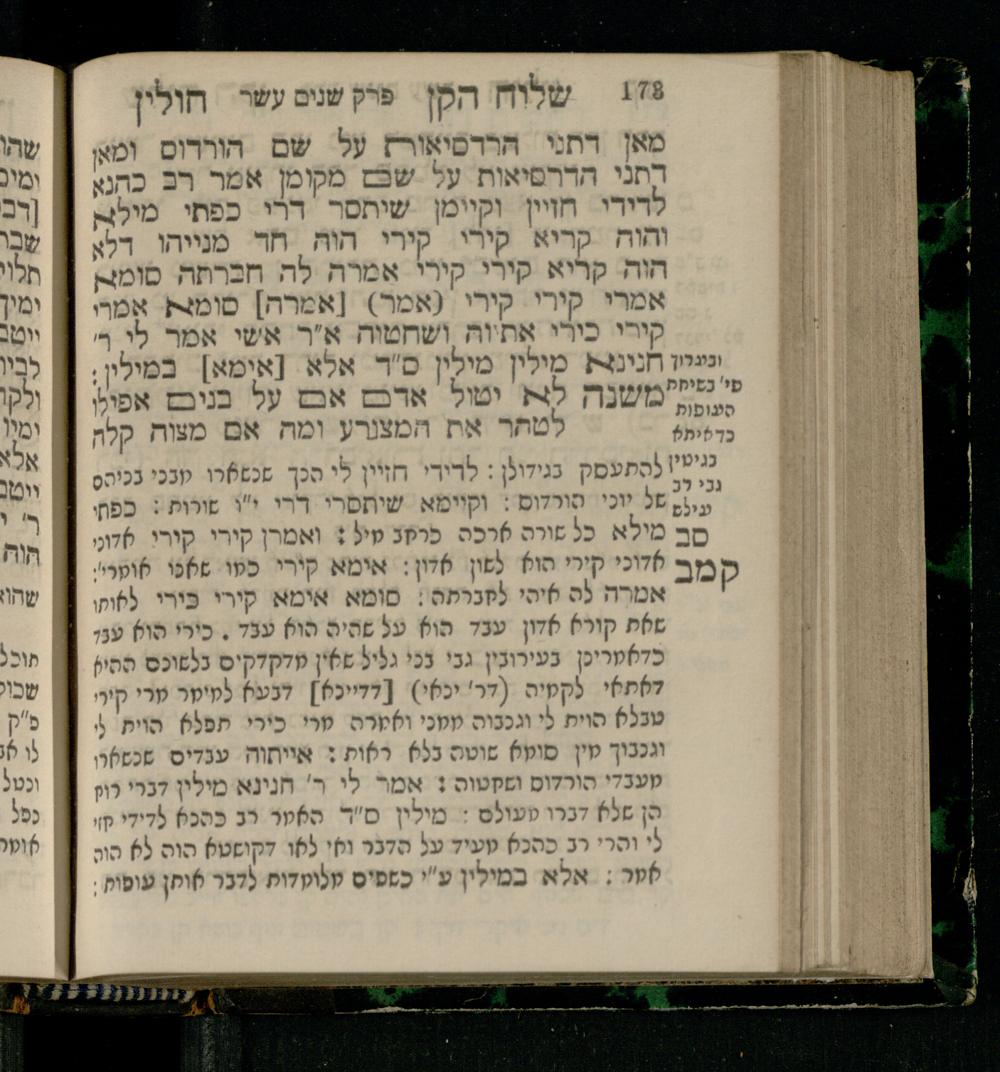 178 שלוח הקן פרק שנים עשר חולין
מאן דתני הרדסיאות על שם הורדוס ומאן
דתני הדרסיאות על שם מקומן אמר רב כהנא
לדידי חזיין וקיימן שיתסר דרי כפתי מילא
והוה קריא קירי קירי הוה חד מנייהו דלא
הוה קריא קירי קירי אמרה לה חברתה סומא
אמרי קירי קירי (אמר) [אמרה] סומא אמרי
קירי כירי אתיוה ושחטוה א״ר אשי אמר לי ר׳
חנינא מילין מילין ס״ד אלא [אימא] במילין:
משנה לא יטול אדם אם על בנים אפילו
לטהר את המצורע ומה אם מצוה קלה
להתעסק בגידולן: לדידי חזיין לי הנך שנשארו מבני בניהם
של יוני הורדוס: וקיימא שיתסרי דרי י״ו שורות: כפתי
מילא כל שורה ארכה כרחב מיל: ואמרן קירי קירי אדוני
אדוני קירי הוא לשון אדון: אימא קירי כמו שאנו אומרי׳:
אמרה לה איהי לחברתה: סומא אימא קירי כירי לאותו
שאת קורא אדון עבד הוא על שהיה הוא עבד. כירי הוא עבד
כדאמרינן בעירובין גבי בני גליל שאין מדקדקים בלשונם ההיא
דאתאי לקמיה (דר׳ ינאי) [דדיינא] דבעא למימר מרי קירי
טבלא הוית לי וגנבוה ממני ואמרה מרי כירי תפלא הוית לי
וגנבוך מין סומא שוטה בלא ראות: אייתוה עבדים שנשארו
מעבדי הורדוס ושחטוה: אמר לי ר׳ חנינא מילין דברי רוח
הן שלא דברו מעולם: מילין ס״ד האמר רב כהנא לדידי חזי
לי והרי רב כהנא מעיד על הדבר ואי לאו דקושטא הוה לא הוה
אמר: אלא במילין ע״י כשפים מלומדות לדבר אותן עופות:
ובערוך
פי׳ בשיחת
העופות
כדאיתא
בגיטין
גבי רב
עילם
סב
קמב